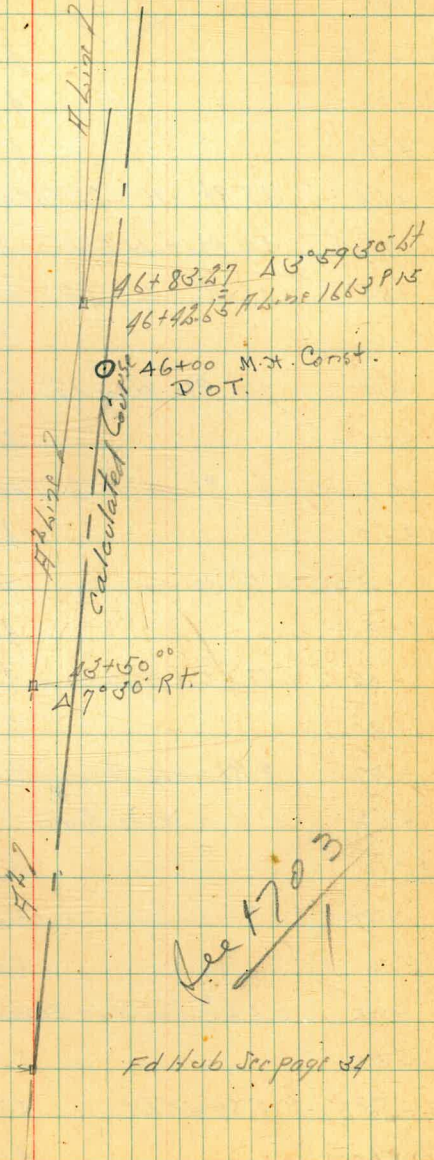 A Line
46+83.27 Δ 3°59'30" Lt
=
46+42.65 A Line 1663 P 15
46+00 M.H. Const.
P.O.T.
Calculated Course
A² Line
43+50⁰⁰
Δ 7°30' Rt.
A²
See 4703
1
Fd Hub See page 34